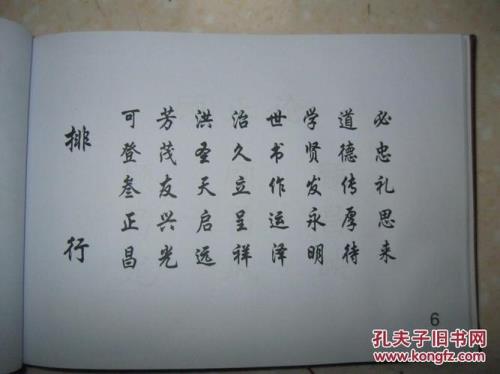 排行
可登叁正昌
芳茂友兴光
洪圣天启远
治久立呈祥
世书作运泽
学贤发永明
道德传厚待
必忠礼思来
6
孔夫子旧书网
www.kongfz.com